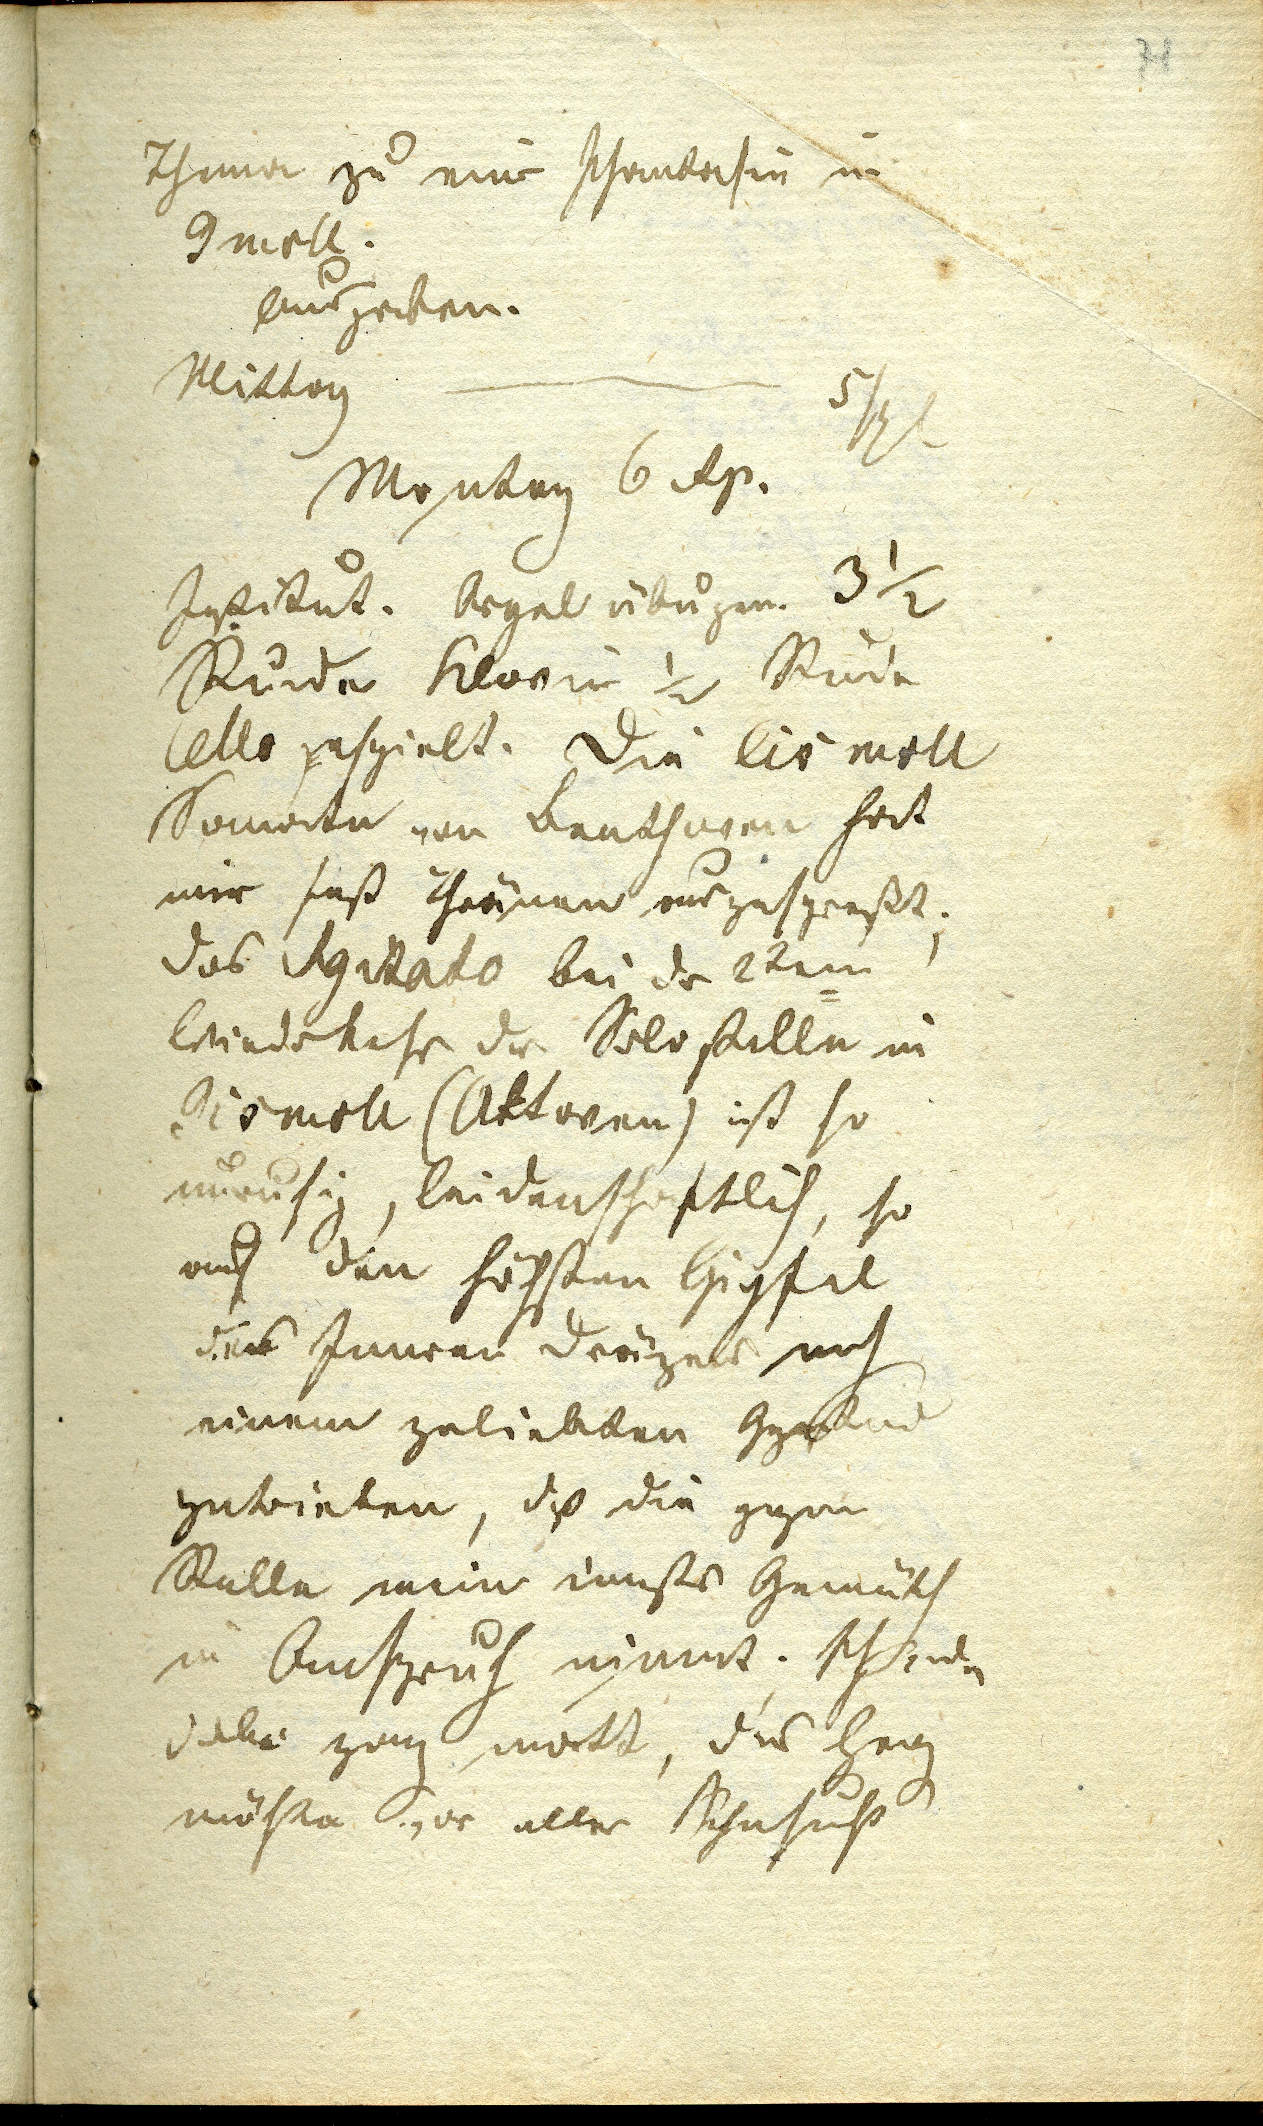 71
Thema zu einer Phantasie in
G moll.
ausgeben.
Mittag 5
Montag 6 Ap.
Institut. Orgel übungen. 3 1/2
Stunde Klavier 1/2 Stunde
Cello gespielt. Die Cis moll
Sonate von Beethoven hat
mir fast Thränen ausgepreßt;
das Agitato bei der 2ten
Wiederkehr der Solostelle in
Gis moll (Oktaven) ist so
unruhig, leidenschaftlich, so
auf den höchsten Gipfel
des Innren Dranges nach
einem geliebten
getrieben, daß die ganze
Stelle mein innerstes Gemüth
in Anspruch nimmt.
dabei ganz matt, das Herz
möchte vor aller Sehnsucht